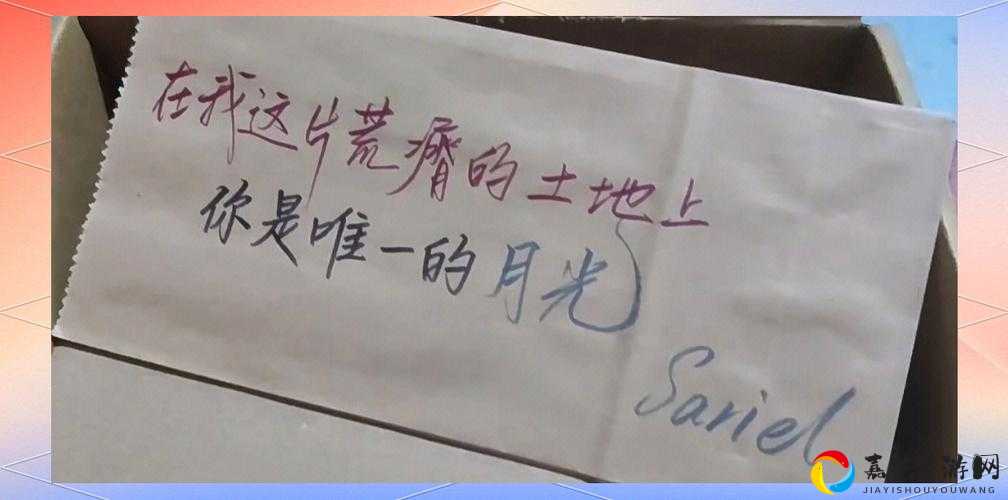 在我这片荒瘠的土地上
你是唯一的月光
Sariel
嘉 游网
JIAYISHOUYOUWANG